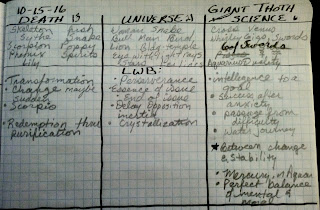 10-15-16
DEATH 13
Skeleton Fish
Scythe Snake
Scorpion Poppy
Prayer Spirits
Lily
Transformation
Change maybe
sudden
Scorpio
Redemption thru
purification
UNIVERSE 21
Snake
Bull Man Bird
Lion Bldg-Temple
LWB:
Perseverance
Essence of issue
End of issue
Delay opposition
inertia
Crystallization
GIANT THOTH
SCIENCE 6
Cross Venus
Swords
6 of Swords
intelligence to a
goal
Success after
anxiety
passage from
difficulty
Water journey
Between change
& Stability
Mercury in Aquari
Perfect balance
of mental &
moral